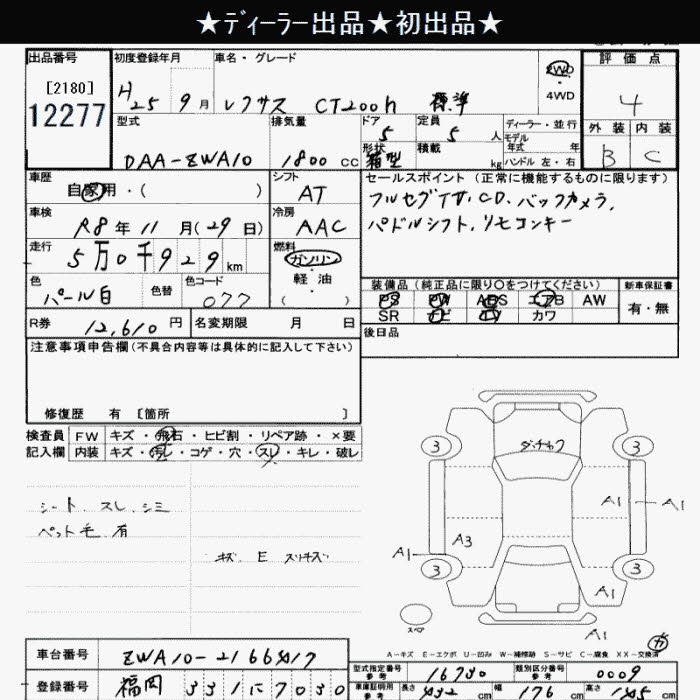 ★ディーラー出品★初出品★
出品番号 初度登録年月 車名・グレード 評価点
[2180] 12277
H25 9月 レクサス CT200h 標準 2WD ・ 4WD 4
型式 排気量 ドア 定員 ディーラー・並行 外装 内装
5 5人 モデル年式 年 B C
DAA-ZWA10 1800cc 形状 箱型 積載 kg ハンドル 左・右
車歴 自家用・( ) シフト AT
セールスポイント(正常に機能するものに限ります)
フルセグTV.CD.バックカメラ.
パドルシフト.リモコンキー
車検 R8年11月(29日) 冷房 AAC
走行 5万0千929km 燃料 ガソリン・軽油 ( )
色 パール白 色替 色コード 077
装備品(純正品に限り○をつけてください) 新車保証書
PS PW ABS エアB AW 有・無
SR ナビ TV カワ
R券 12,610円 名変期限 月 日
後日品
注意事項申告欄(不具合内容等は具体的に記入して下さい)
修復歴 有 [箇所 ]
検査員 FW キズ・飛石・ヒビ割・リペア跡・×要
記入欄 内装 キズ・汚レ・コゲ・穴・スレ・キレ・破レ
シート.スレ.シミ
ペット毛.有
キズ. E スリキズ
3 3
A1 A1
A3
A1
3 3
A1
スペア
A1
A-キズ E-エクボ U-凹み W-補修跡 S-サビ C-腐食 XX-交換済
車台番号 ZWA10-2166417
型式指定番号 参考 16730 類別区分番号 参考 0009
登録番号 福岡 331 に 7030
車庫証明用 参考 長さ 432cm 幅 176cm 高さ 145cm